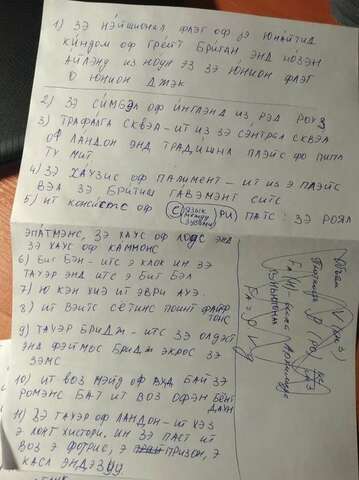 1) ЗЭ НЭЙШИОНАЛ ФЛЭГ ОФ ЗЭ ЮНАЙТИД
КИНДОМ ОФ ГРЕЙТ БРИТАН ЭНД НОЗЭН
АЙЛЭНД ИЗ НОУН ЭЗ ЗЭ ЮНИОН ФЛЭГ
О ЮНИОН ДЖЭК
2) ЗЭ СИМБЭЛ ОФ ИНГЛЭНД ИЗ РЭД РОУЗ
3) ТРАФАЛГА СКВЭА – ИТ ИЗ ЗЭ СЭНТРАЛ СКВЭА
ОФ ЛАНДОН ЭНД ТРАДИШНЛ ПЛЭЙС ФО ПИПЛ
ТУ МИТ
4) ЗЭ ХАУЗИС ОФ ПАЛИМЕНТ – ИТ ИЗ Э ПЛЭЙС
ВЭА ЗЭ БРИТИШ ГАВЭМЕНТ СИТС
5) ИТ КОНСИСТС ОФ С (ЯЗЫК МЕЖДУ ЗУБАМИ) РИ ПАТС: ЗЭ РОЯЛ
ЭПАТМЭНС, ЗЭ ХАУС ОФ ЛОДС ЭНД
ЗЭ ХАУС ОФ КАММОНС
6) БИГ БЭН – ИТС Э КЛОК ИН ЗЭ
ТАУЭР ЭНД ИТС Э БИГ БЭЛ
7) Ю КЭН ХИЭ ИТ ЭВРИ АУЭ.
8) ИТ ВЭЙТС СЕТИНС ПОИНТ ФАЙФ
ТОНС
9) ТАУЭР БРИДЖ – ИТС ЗЭ ОЛДЭСТ
ЭНД ФЭЙМЫС БРИДЖ ЭКРОС ЗЭ
ЗЭМС
10) ИТ ВОЗ МЭЙД ОФ ВУД БАЙ ЗЭ
РОМЭНС БАТ ИТ ВОЗ ОФЭН БЁНТ
ДАУН
11) ЗЭ ТАУЭР ОФ ЛАНДОН – ИТ ХЭЗ
Э ЛОНГ ХИСТОРИ. ИН ЗЭ ПАСТ ИТ
ВОЗ Э ФОТРИС, Э ПРИЗОН, Э
КАСЛ ЭНД Э ЗУУ.
Объём V (м3)